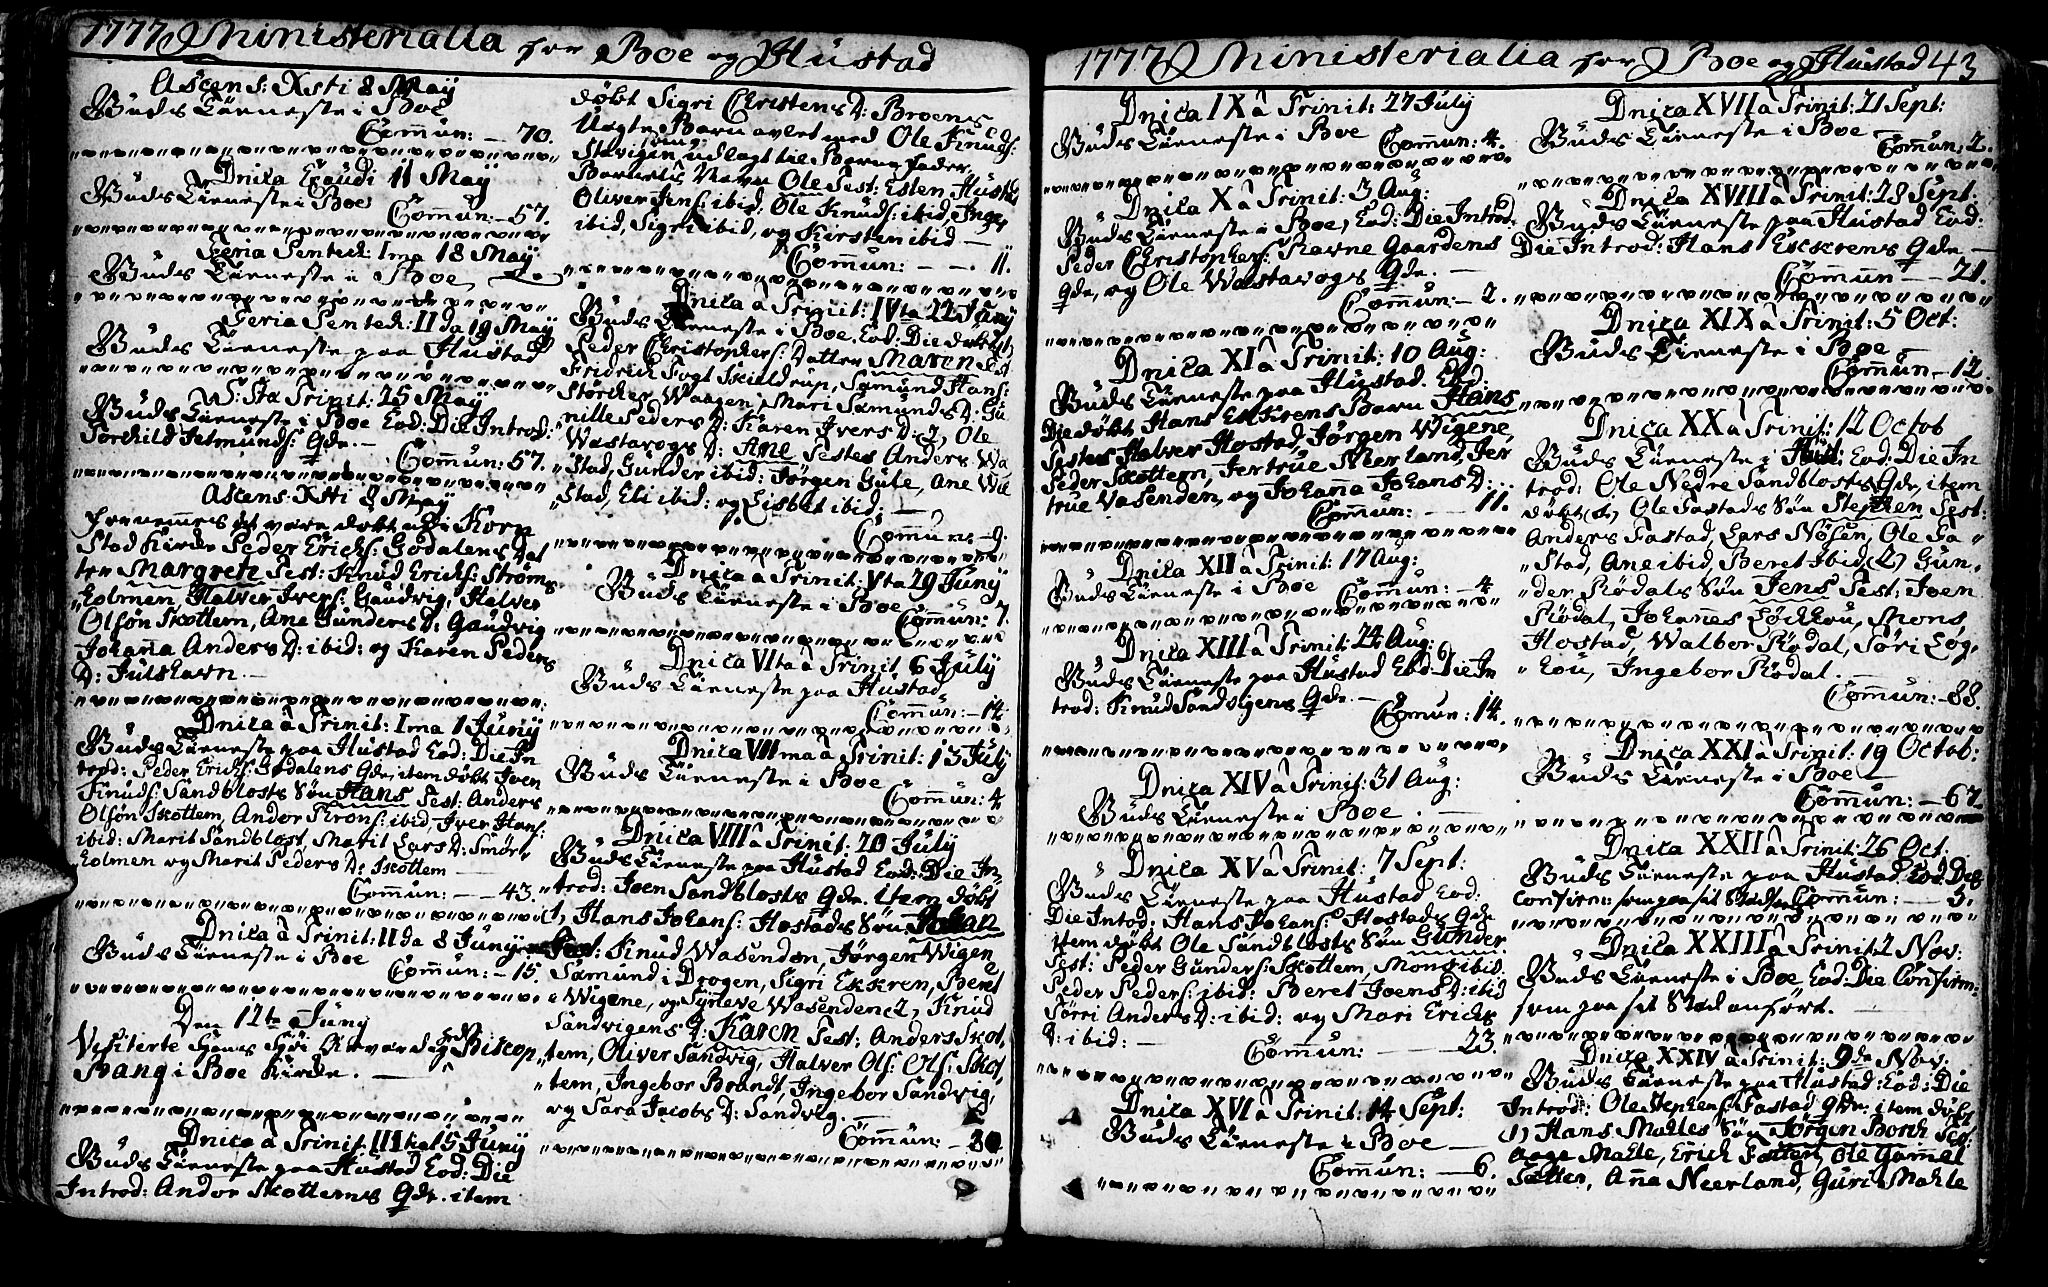 1777 Ministerialia for Boe og Hustad
Ascens: Xsti 8 May
Guds Tieneste i Boe
Comun: — 70.
Dnica Exaudi 11 May
Guds Tieneste i Boe
Comun: — 57.
Feria Pentec: Ima 18 May
Guds Tieneste i Boe
Feria Pentec: IIda 19 May
Guds Tieneste paa Hustad
Trinit: 25 May
Guds Tieneste i Boe Eod: Die Introd:
Torchild Jetmunds: Qde. —
Comun: 57.
Ascens: Xsti 8 May
at være døbt i Korn
Stad Kirke Peder Erichs: Godalens Dat
ter Margreth Test: Knud Erichs: Strøms
holmen Halver Ivers: Gaudvig, Halver
Olsøn Skottem, Ane Gunders D: Gaudvig
Johana Anders D: ibid: og Karen Peders
D: Julshavn. —
Dnica a Trinit: Ima 1 Juny
Guds Tieneste paa Hustad Eod: Die In
trod: Peder Erichs: Godalens Qde, item døbt Joen
Knuds: Sandblosts Søn Hans Test: Anders
Olsøn Skottem, Andor Throns: ibid, Iver Hans:
ibid: Marit Sandblost, Marit Lars D: Smør,
holmen og Marit Peders D: Skottem —
Comun: — 43.
Dnica a Trinit: IIda 8 Juny
Guds Tieneste i Boe
Comun: — 15.
Den 12te Juny
Visiterte Hans Høi Ærværdighed Biscop
Bang i Boe Kirke. —
Dnica a Trinit: IIItia 15 Juny
Guds Tieneste paa Hustad Eod: Die
Introd: Andor Skottems Qde. item
døbt Sigri Christens D: Broens
Uægte Barn avlet med Ole Knuds:
Stavigen, udlagt til Barne Fader
Barnets Navn Ole Test: Esten Hustad
Oliver Jens: ibid: Ole Knuds: ibid, Inger
ibid, Sigri ibid, og Kirsten ibid —
Comun: — — 11.
Dnica a Trinit: IVta 22 Juny
Guds Tieneste i Boe. Eod: Die døbt
Peder Christophers: Datter Maren Test
Fridrich Fogt Skieldrup, Samund Hans:
Størcher Waagen, Mari Samunds D: Gu
nille Peders D: Karen Ivers D: 2, Ole
Wastavogs D: Ane Testes Anders Wa
Stad, Gunder ibid: Jørgen Gule, Ane Wa
Stad, Eli ibid: og Lisbet ibid: —
Comun: — 9.
Dnica a Trinit: Vta 29 Juny
Guds Tieneste i Boe
Comun: 7.
Dnica VIta a Trinit 6 July
Guds Tieneste paa Hustad,
Comun: — 14.
Dnica VIIma a Trinit: 13 July
Guds Tieneste i Boe
Comun: 4
Dnica VIII a Trinit: 20 July
Guds Tieneste paa Hustad Eod: Die In
trod: Joen Sandblosts Qde. item døbt
1, Hans Johans: Hostads Søn Johan
Test: Knud Wasenden, Jørgen Wigen
Samund i Drogen, Sigri Ekkren, Beret
Wigene, og Synneve Wasenden 2, Knud
Sandvigens D: Karen Test: Anders Skot,
tem, Oliver Sandvig, Halver Ols: Ols: Skot
tem, Ingebor Brandt, Ingebor Sandvig,
og Sara Jacobs D: Sandvig. —
Comun: — 20
1777 Ministerialia for Boe og Hustad 43
Dnica IX a Trinit: 27 July
Guds Tieneste i Boe
Comun: 4.
Dnica X a Trinit: 3 Aug:
Guds Tieneste i Boe, Eod: Die Introd:
Peder Christophers: Havne Gaardens
Qde, og Ole Wastavogs Qde. —
Comun: — 2.
Dnica XI a Trinit: 10 Aug:
Guds Tieneste paa Hustad. Eod:
Die døbt Hans Ekkrens Barn Hans
Testes Halver Hostad, Jørgen Wigene,
Peder Skottem, Jertrue Neerland, Jer
true Vasenden, og Johana Johans D:
Comun: — 11.
Dnica XII a Trinit: 17 Aug:
Guds Tieneste i Boe
Comun: — 4
Dnica XIII a Trinit: 24 Aug:
Guds Tieneste paa Hustad Eod: Die In
trod: Knud Sandvigens Qde. —
Comun: 14.
Dnica XIV a Trinit: 31 Aug:
Guds Tieneste i Boe. —
Dnica XV a Trinit: 7 Sept:
Guds Tieneste paa Hustad Eod:
Die Introd: Hans Johans: Hostads Qde
item døbt Ole Sandblosts Søn Gunder
Test: Peder Gunders: Skottem, Mons ibid:
Peder Peders: ibid: Beret Joens D: ibid
Sørri Anders D: ibid: og Mari Erichs
D: ibid: —
Comun: — 23.
Dnica XVI a Trinit: 14 Sept:
Guds Tieneste i Boe —
Comun: — 6.
Dnica XVII a Trinit: 21 Sept:
Guds Tieneste i Boe
Comun: 2.
Dnica XVIII a Trinit: 28 Sept:
Guds Tieneste paa Hustad Eod:
Die Introd: Hans Ekkrens Qde —
Comun — 21.
Dnica XIX a Trinit: 5 Oct:
Guds Tieneste i Boe —
Comun — 12.
Dnica XX a Trinit: 12 Octob
Guds Tieneste i Hust: Eod: Die In
trod: Ole Nedre Sandblosts Qde, item
døbt (1, Ole Tastads Søn Stephen Test:
Anders Tastad, Lars Nøsen, Ole Ta
Stad, Ane ibid, Beret Ibid, (2, Gun,
der Rødals Søn Jens Test: Joen
Rødal, Johanes Løchhou, Mons
Hostad, Walbor Rødal, Søri Løg,
hou, Ingebor Rødal. —
Comun: — 88.
Dnica XXI a Trinit: 19 Octob:
Guds Tieneste i Boe
Comun: — 67
Dnica XXII a Trinit: 26 Oct:
Guds Tieneste paa Hustad Eod: Die
Confirm: som paa sit Sted sees Comun: — 5.
Dnica XXIII a Trinit: 2 Nov:
Guds Tieneste i Boe Eod: Die Confirm:
som paa sit Sted anført. —
Dnica XXIV a Trinit: 9de Nov:
Guds Tieneste paa Hustad: Eod: Die
Introd: Ole Stephens: Tastad Qde: item døbt
1) Hans Mahles Søn Jørgen Borch Test:
Aage Mahle, Erich Sætter, Ole Gamel
Sætter, Ana Neerland, Guri Mahle